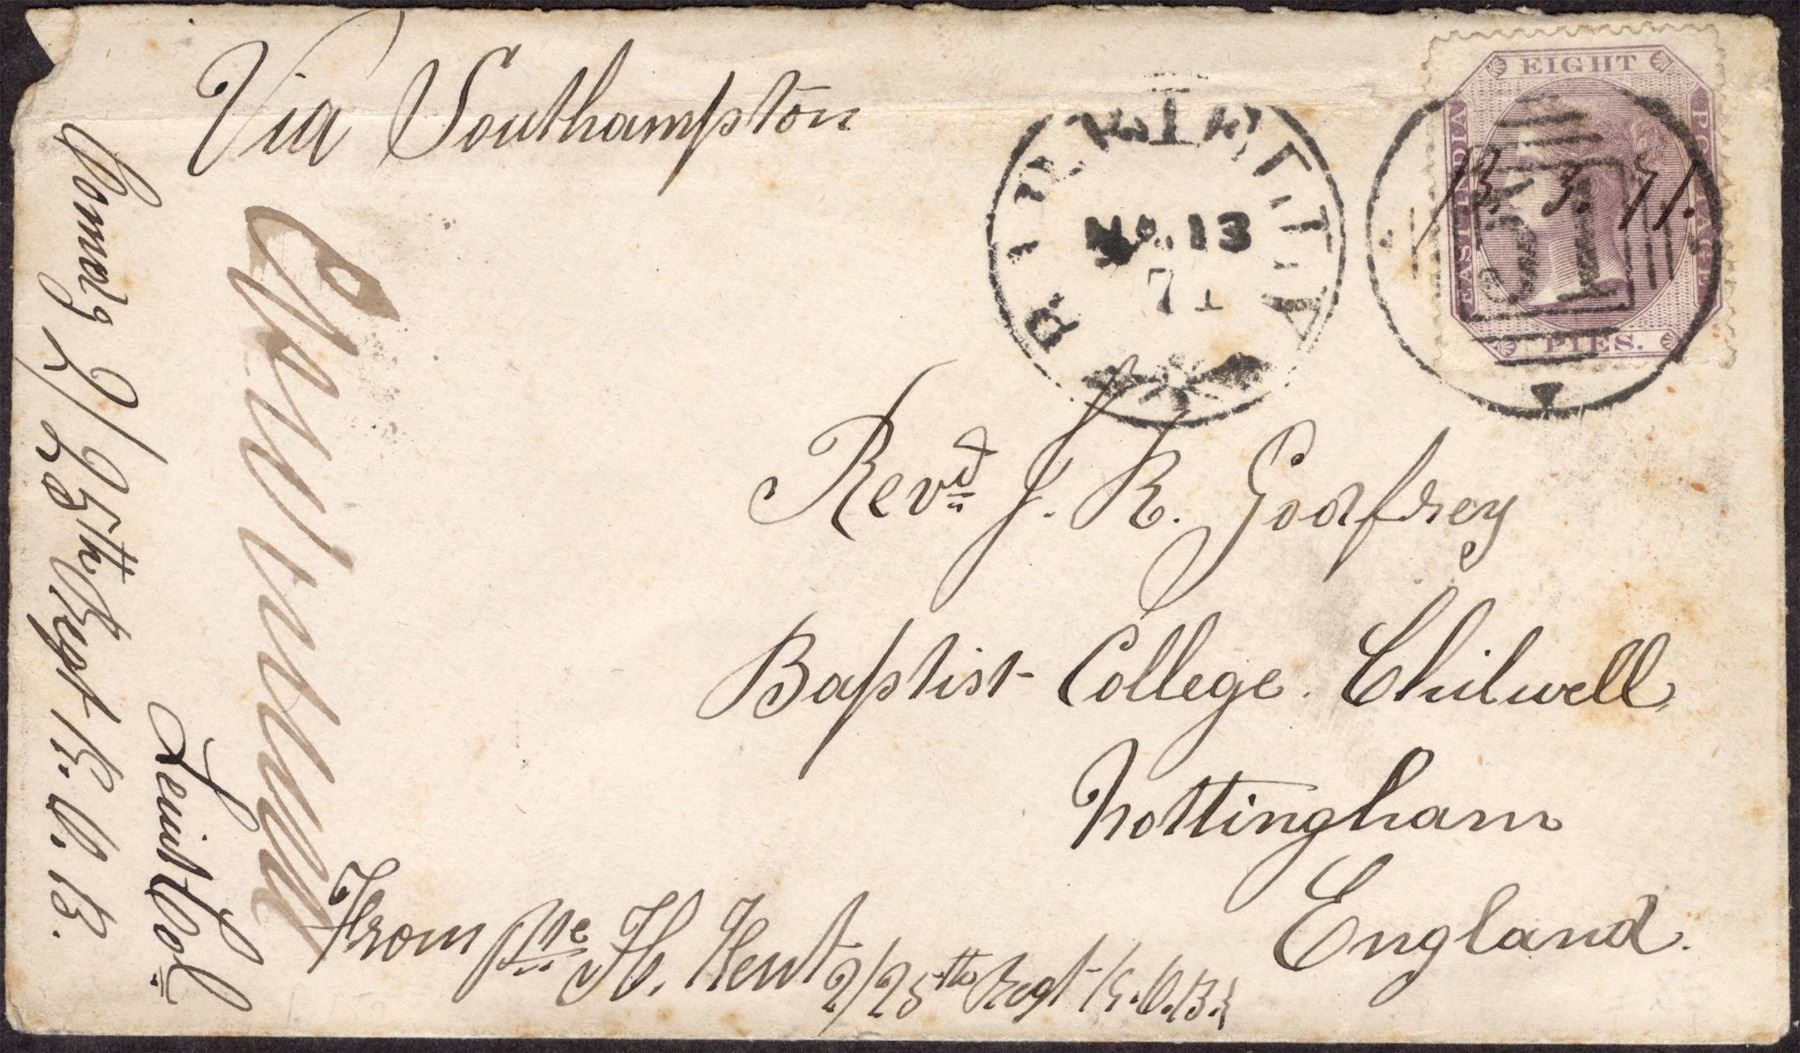 Via Southampton
RAWALPINDI
MR. 13
71
EIGHT
EAST INDIA
POSTAGE
PIES.
13. 3. 71.
Revd J. R. Godfrey
Baptist College. Chilwell
Nottingham
England.
From Pte H. Kent 2/25th Regt K.O.B.
Comdg 2/25th Regt K.O.B.
Leiut Col